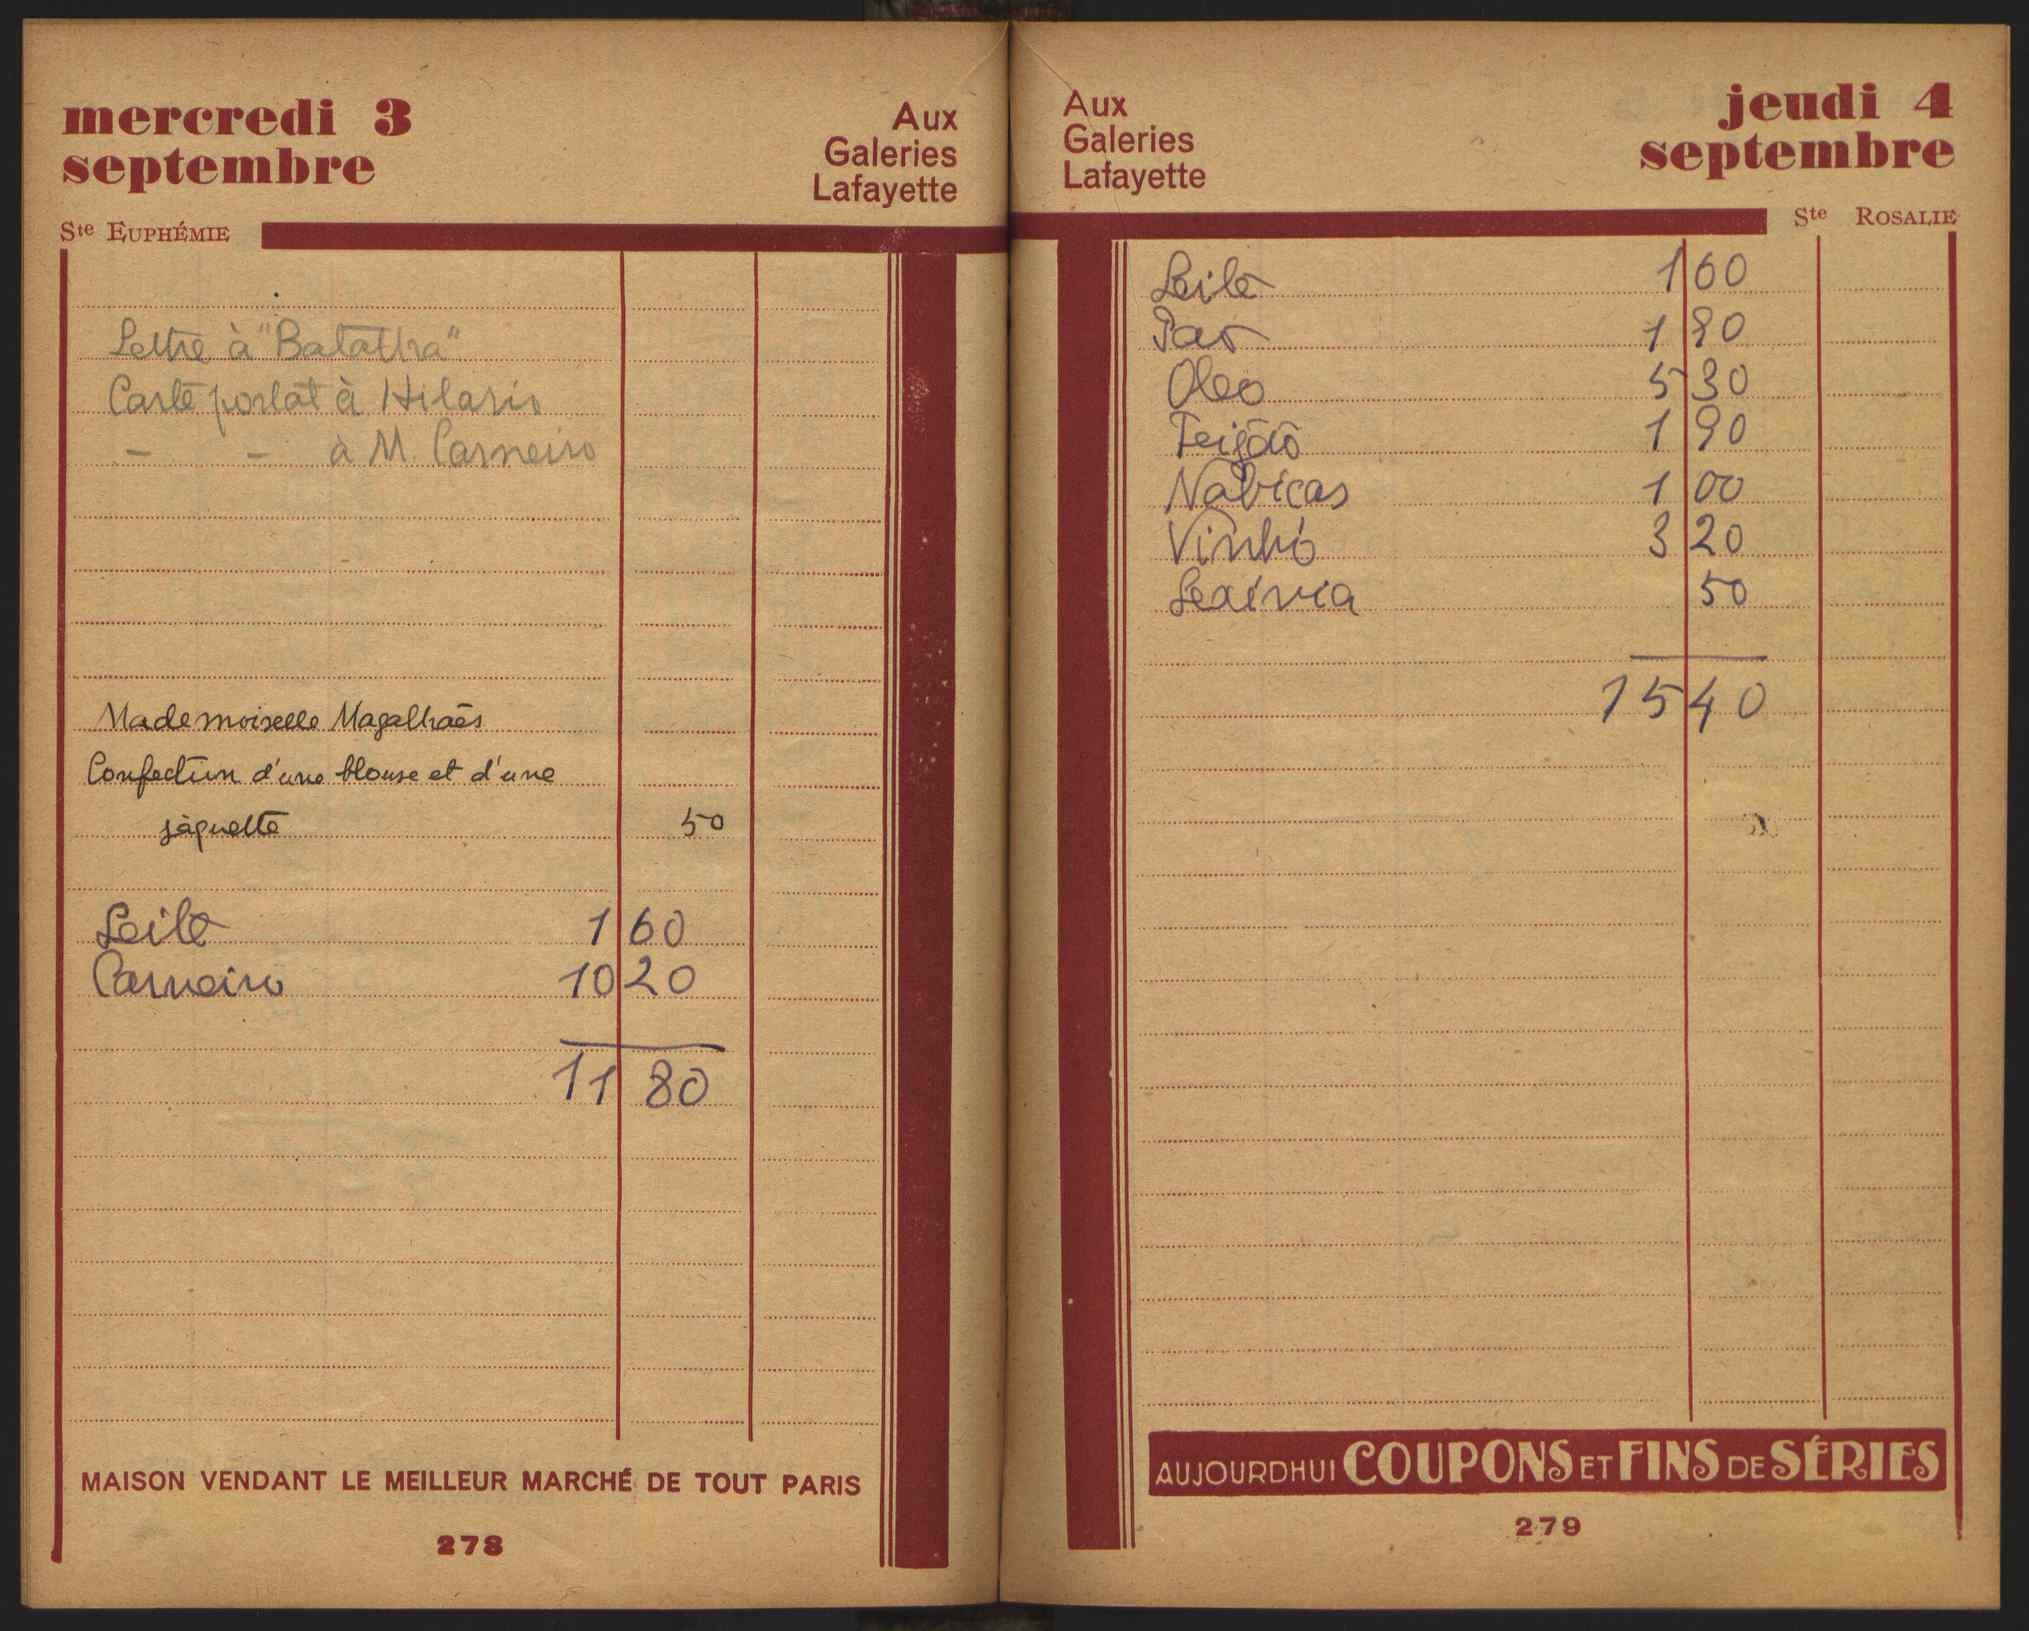 mercredi 3
septembre
Aux
Galeries
Lafayette
Ste EUPHÉMIE
Lettre à "Batalha"
Carte postal à Hilario
- - à M. Carneiro
Mademoiselle Magalhaês
Confection d'une blouse et d'une
jàquette 50
Leite 1 60
Carneiro 10 20
11 80
MAISON VENDANT LE MEILLEUR MARCHÉ DE TOUT PARIS
278
Aux
Galeries
Lafayette
jeudi 4
septembre
Ste ROSALIE
Leite 1 60
Pao 1 90
Oleo 5 30
Feijão 1 90
Nabiças 1 00
Vinho 3 20
Lexívia 50
15 40
AUJOURDHUI COUPONS ET FINS DE SÉRIES
279